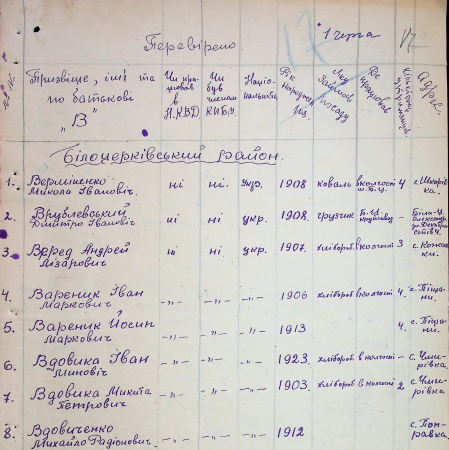 Перевірено.
17
1 черга
№№
Прізвище, ім'я та по батькові „В" Чи працював в Н.КВД Чи був членом К.П.б.У. Національність Рік народження Яку посаду Де працював Адрес.
Білоцерківський район.
1. Верміненко Микола Іванович. ні ні. Укр. 1908 коваль в колгоспі 4
2. Врублевський Дмитро Іванович ні ні укр. 1908. грузчик Б-Ц. –
3. Веред Андрей Лізарович ні ні укр. 1907. хлібороб. в колгоспі 3
4. Вареник Іван Маркович –„– –„– –„– 1906 хлібороб в колгоспі 4. с. Піщани.
5. Вареник Йосип Маркович –„– –„– –„– 1913 4. с. Піщани.
6. Вдовика Іван Минович –„– –„– –„– 1923. хлібороб. в колгоспі – с. Чмирівка.
7. Вдовика Микита Петрович –„– –„– –„– 1903. хлібороб в колгоспі 2 с. Чмирівка
8. Вдовиченко Михайло Радіонович. –„– –„– –„– 1912 с. Поправка.